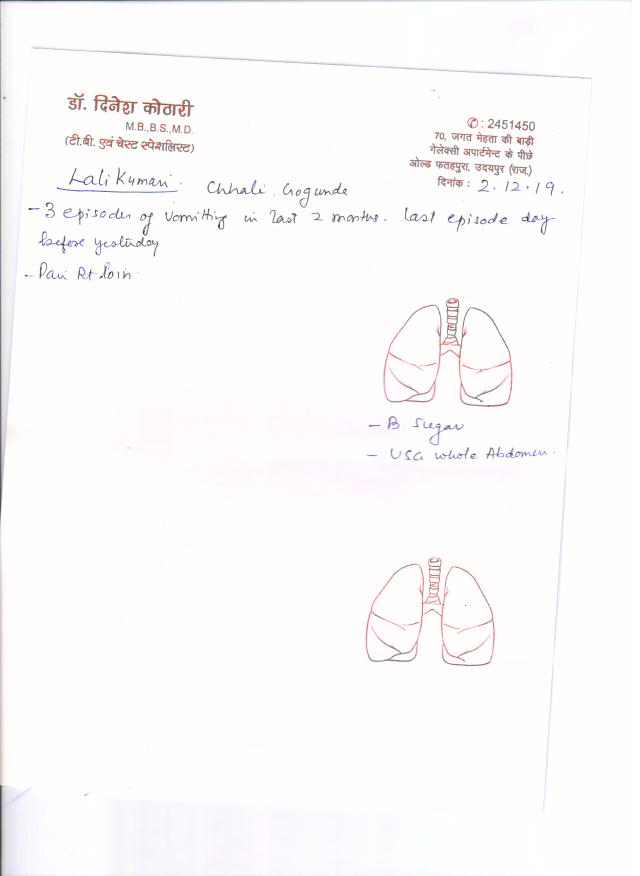 डॉ. दिनेश कोठारी
M.B.,B.S.,M.D.
(टी.बी. एवं चेस्ट स्पेशलिस्ट)
✆ : 2451450
70, जगत मेहता की बाड़ी
गेलेक्सी अपार्टमेन्ट के पीछे
ओल्ड फतहपुरा, उदयपुर (राज.)
दिनांक : 2.12.19.
Lali Kumari. Chhali Gogunda
- 3 episodes of vomitting in last 2 months. last episode day
before yesterday
- Pain Rt loin
- B. Sugar
- USG whole Abdomen.